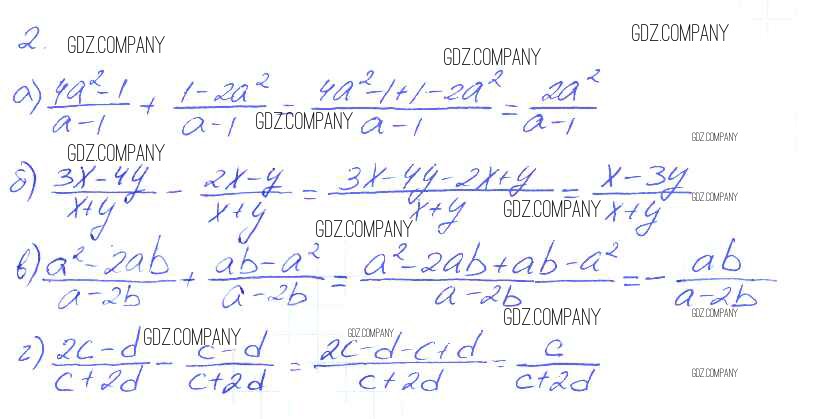 2. GDZ.COMPANY GDZ.COMPANY GDZ.COMPANY
а) (4a²-1)/(a-1) + (1-2a²)/(a-1) = (4a²-1+1-2a²)/(a-1) = 2a²/(a-1)
GDZ.COMPANY GDZ.COMPANY
GDZ.COMPANY
б) (3x-4y)/(x+y) - (2x-y)/(x+y) = (3x-4y-2x+y)/(x+y) = (x-3y)/(x+y)
GDZ.COMPANY GDZ.COMPANY
GDZ.COMPANY
в) (a²-2ab)/(a-2b) + (ab-a²)/(a-2b) = (a²-2ab+ab-a²)/(a-2b) = - ab/(a-2b)
GDZ.COMPANY GDZ.COMPANY
GDZ.COMPANY GDZ.COMPANY
г) (2c-d)/(c+2d) - (c-d)/(c+2d) = (2c-d-c+d)/(c+2d) = c/(c+2d)
GDZ.COMPANY